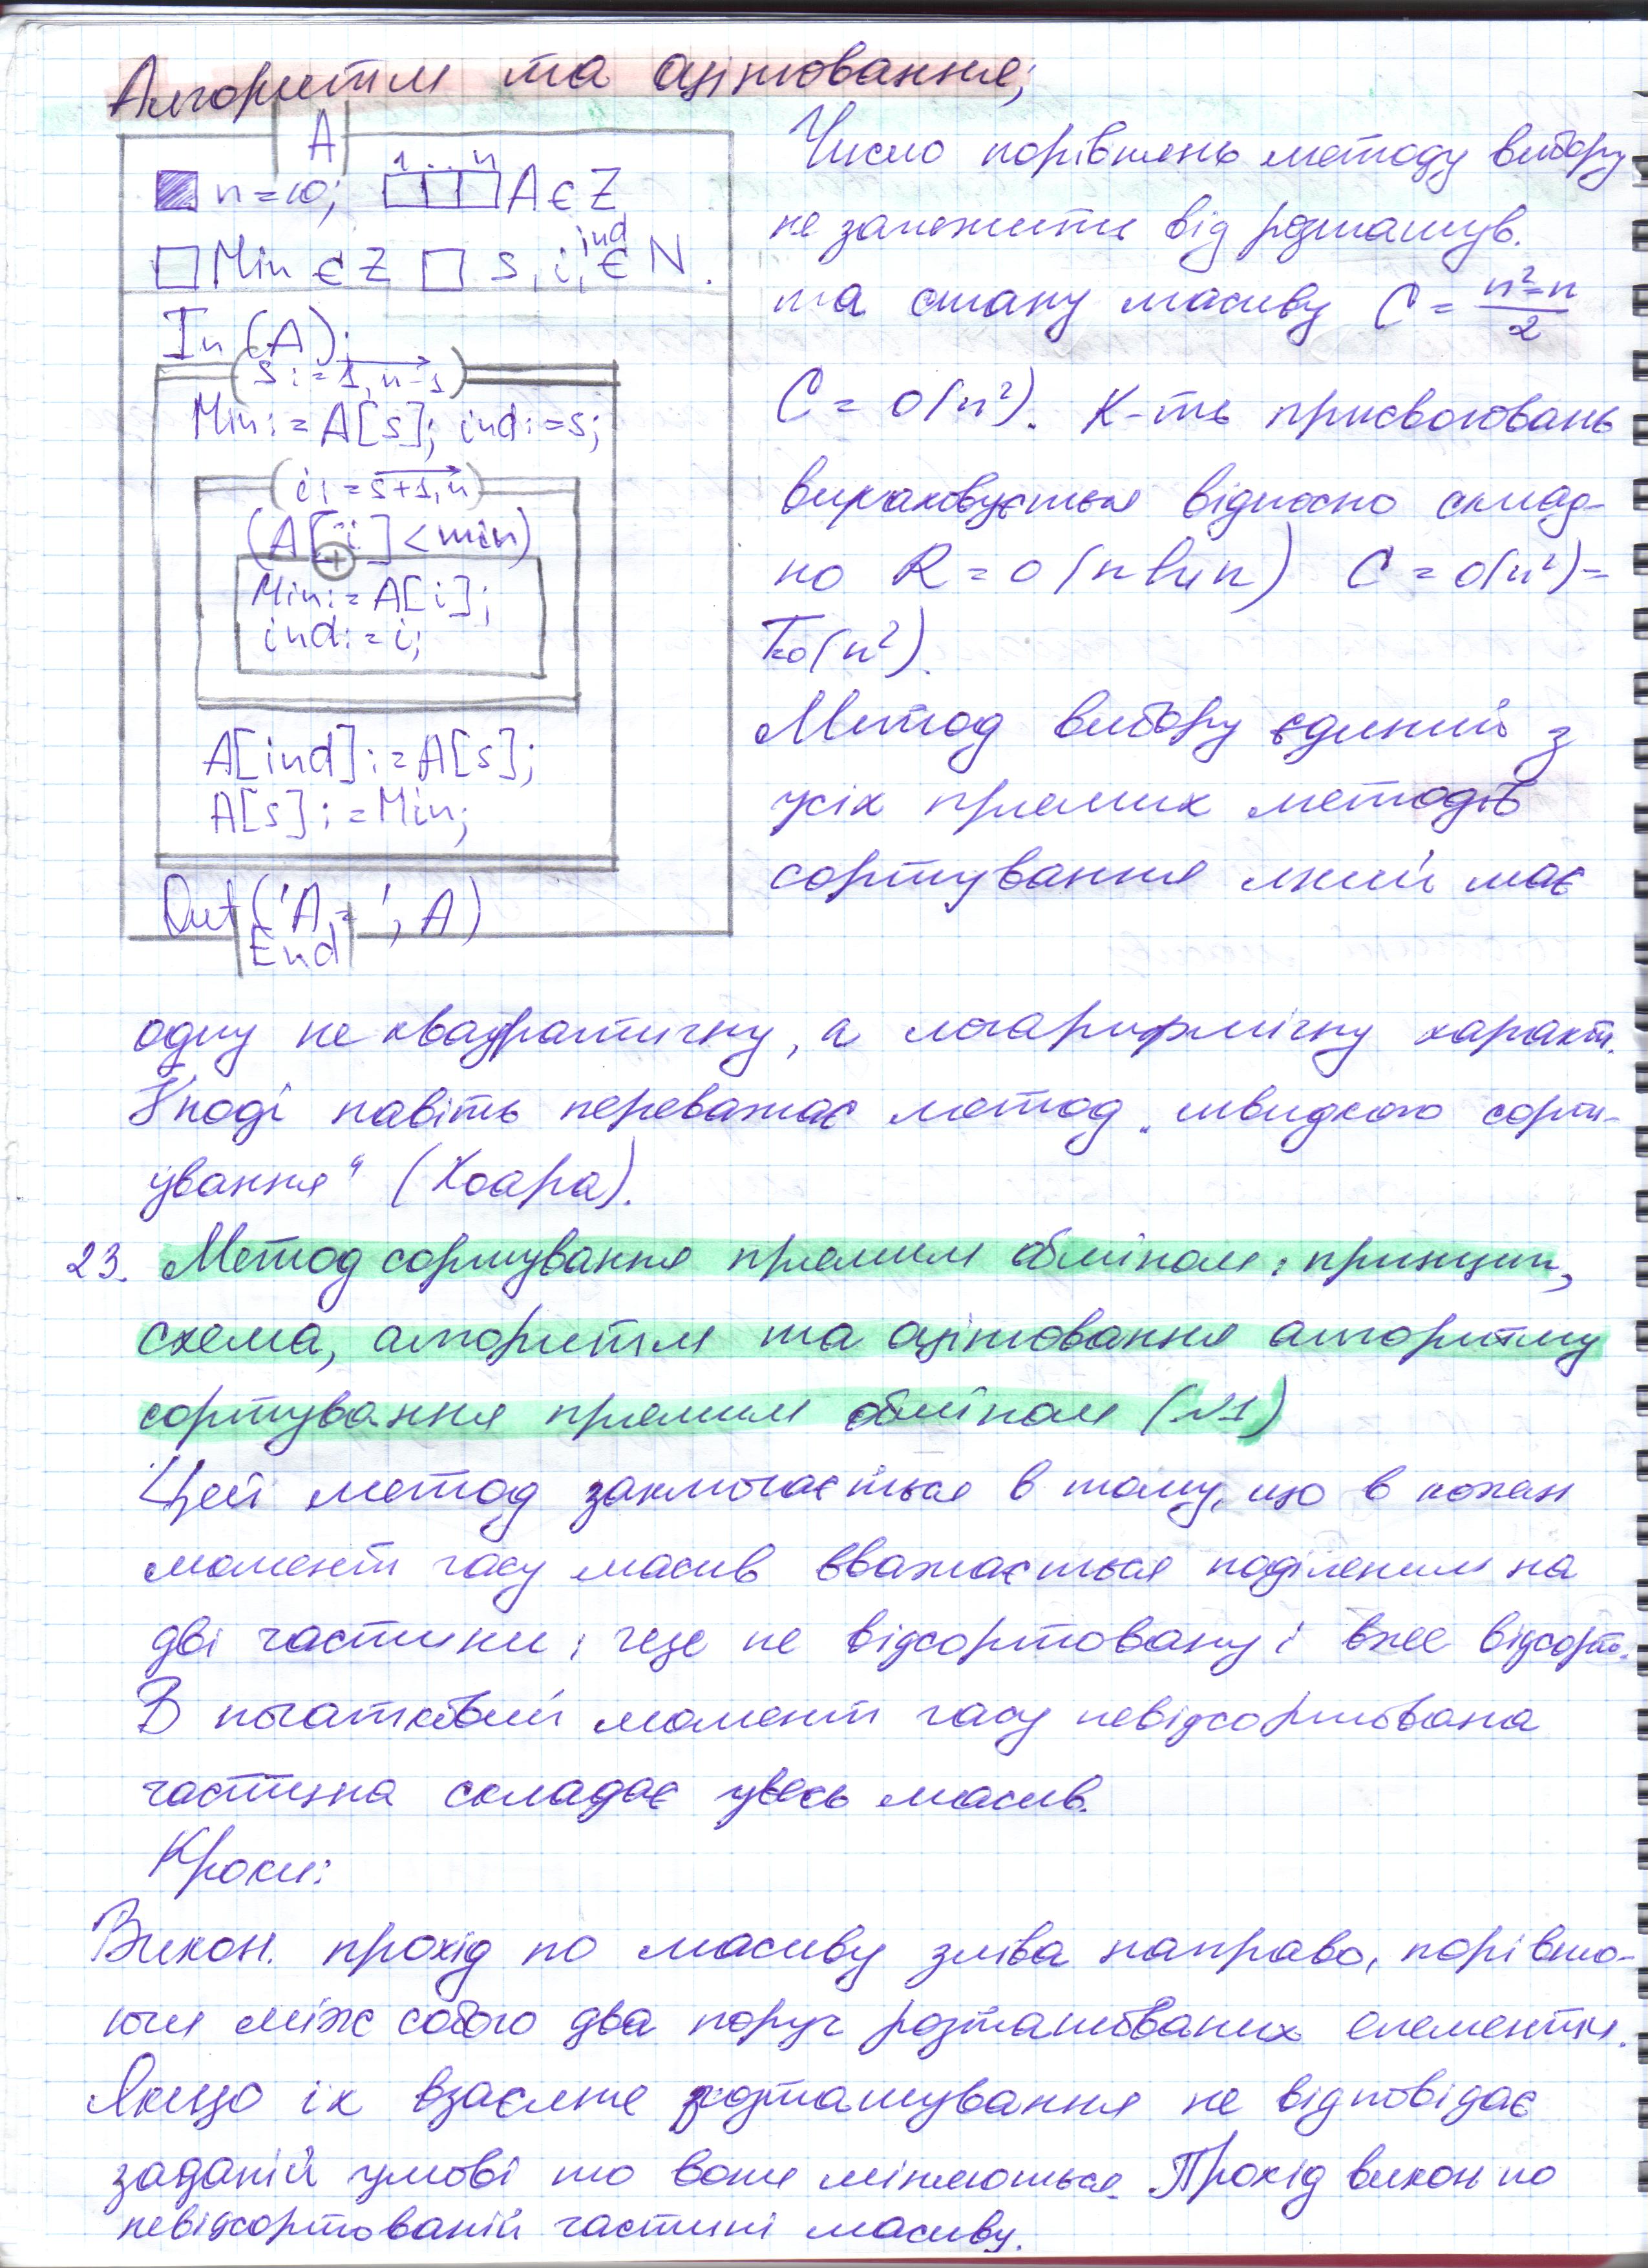 Алгоритм та оцінювання;
A
n=10; 1...n A є Z
Min є Z s, i, ind є N.
In(A);
s:=1,n-1
Min:=A[s]; ind:=s;
i:=s+1,n
(A[i]<min)
+
Min:=A[i];
ind:=i;
A[ind]:=A[s];
A[s]:=Min;
Out('A=', A)
End
Число порівнянь методу вибору
не залежить від розташув.
та стану масиву C = (n²-n)/2
C = O(n²). К-ть присвоювань
вираховується відносно склад-
но R = O(n ln n) C = O(n²) =
T=O(n²).
Метод вибору єдиний з
усіх прямих методів
сортування який має
одну не квадратичну, а логарифмічну характ.
Іноді навіть переважає метод „швидкого сорт-
ування“ (Хоара).
23. Метод сортування прямим обміном: принцип,
схема, алгоритм та оцінювання алгоритму
сортування прямим обміном (№1)
Цей метод заключається в тому, що в кожен
момент часу масив вважається поділеним на
дві частини: ще не відсортовану і вже відсорт.
В початковий момент часу невідсортована
частина складає увесь масив.
Кроки:
Викон. прохід по масиву зліва направо, порівню-
ючи між собою два поруч розташованих елементи.
Якщо їх взаємне розташування не відповідає
заданій умові то вони міняються. Прохід викон по
невідсортованій частині масиву.